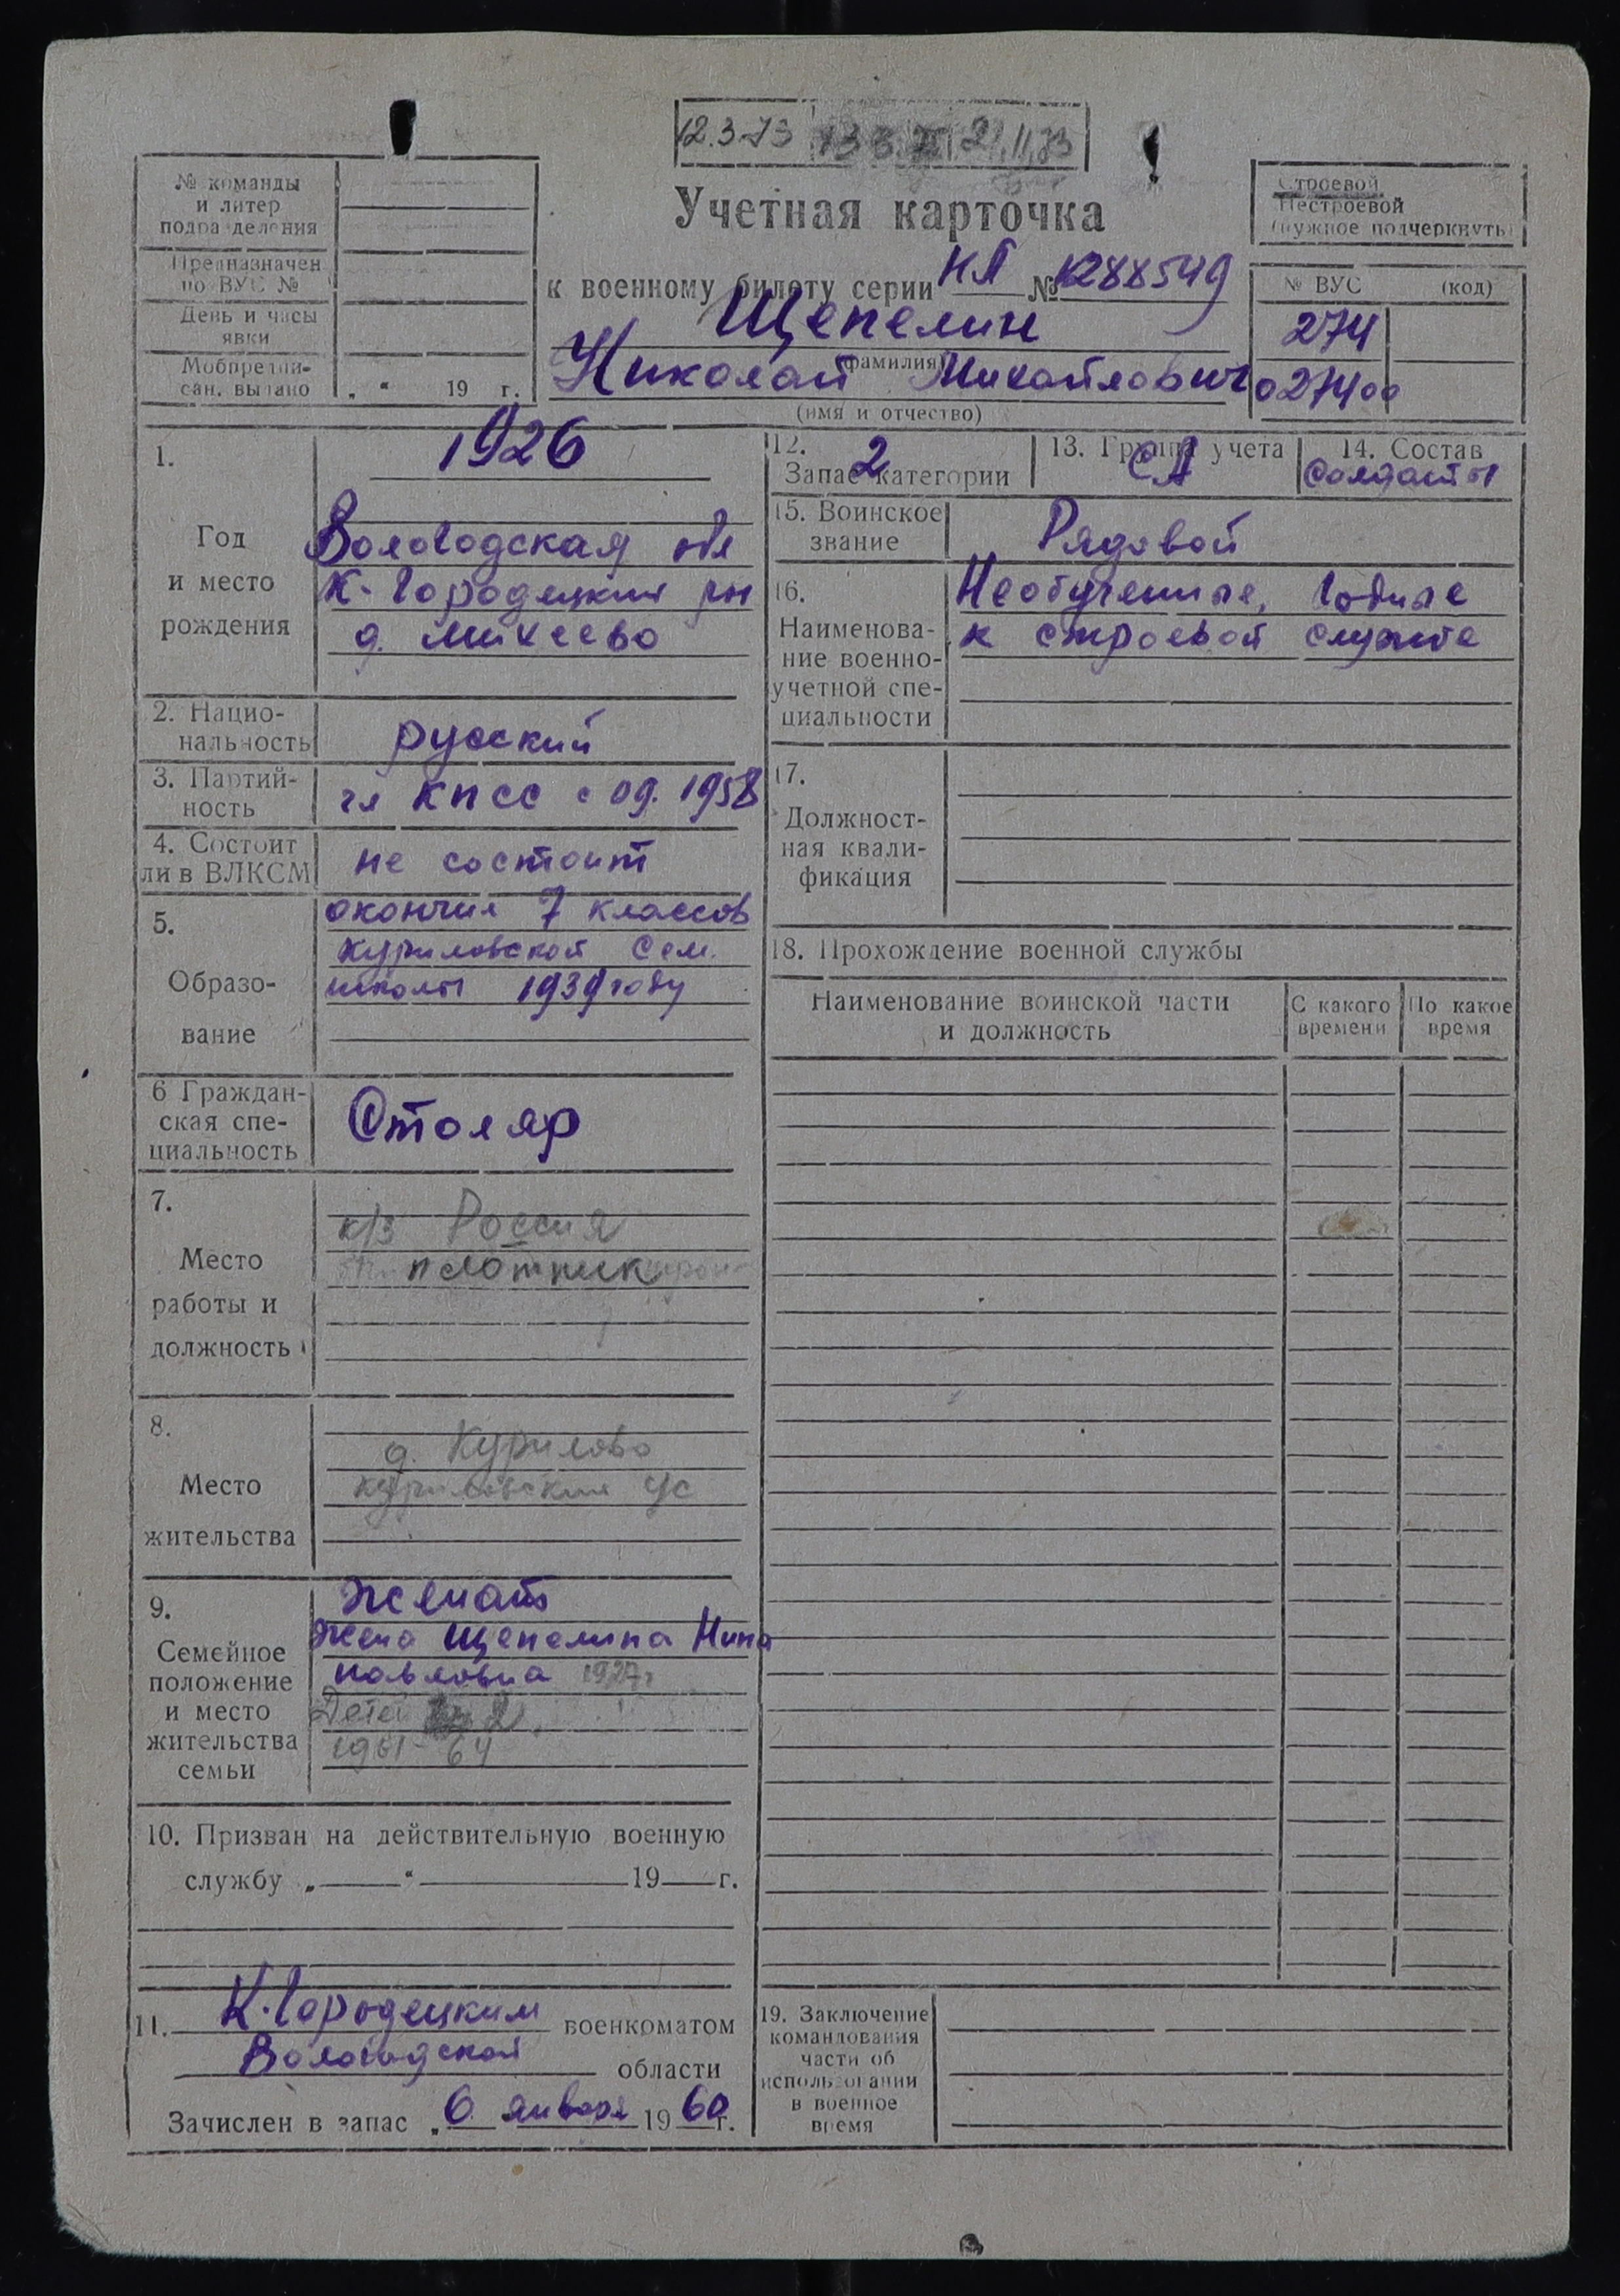 12.3.73 21.11.73
№ команды
и литер
подразделения
Предназначен
по ВУС №
День и часы
явки
Мобпредпи-
сан. выдано „ “ 19 г.
Учетная карточка
к военному билету серии НЛ № 1288549
Щепелин
(фамилия)
Николай Михайлович
(имя и отчество)
Строевой
Нестроевой
(нужное подчеркнуть)
№ ВУС (код)
274
027400
1.
Год
и место
рождения
1926
Вологодская обл
К-Городецкий рн
д. Михеево
2. Нацио-
нальность
русский
3. Партий-
ность
чл КПСС с 09.1958
4. Состоит
ли в ВЛКСМ
не состоит
5.
Образо-
вание
окончил 7 классов
Куриловской Сем.
школы 1939 году
6 Граждан-
ская спе-
циальность
Столяр
7.
Место
работы и
должность
к/з Россия
плотник
8.
Место
жительства
д. Курилово
Куриловский с/с
9.
Семейное
положение
и место
жительства
семьи
Женат
жена Щепелина Нина
Павловна 1927г
Детей 2
1961-64
10. Призван на действительную военную
службу „ “ 19 г.
11. К.Городецким военкоматом
Вологодской области
Зачислен в запас „6 января 1960г.
12.
Запас 2 категории
13. Группа учета
СА
14. Состав
Солдаты
15. Воинское
звание
Рядовой
16.
Наименова-
ние военно-
учетной спе-
циальности
Необученные, годные
к строевой службе
17.
Должност-
ная квали-
фикация
18. Прохождение военной службы
Наименование воинской части
и должность
С какого
времени
По какое
время
19. Заключение
командования
части об
использовании
в военное
время